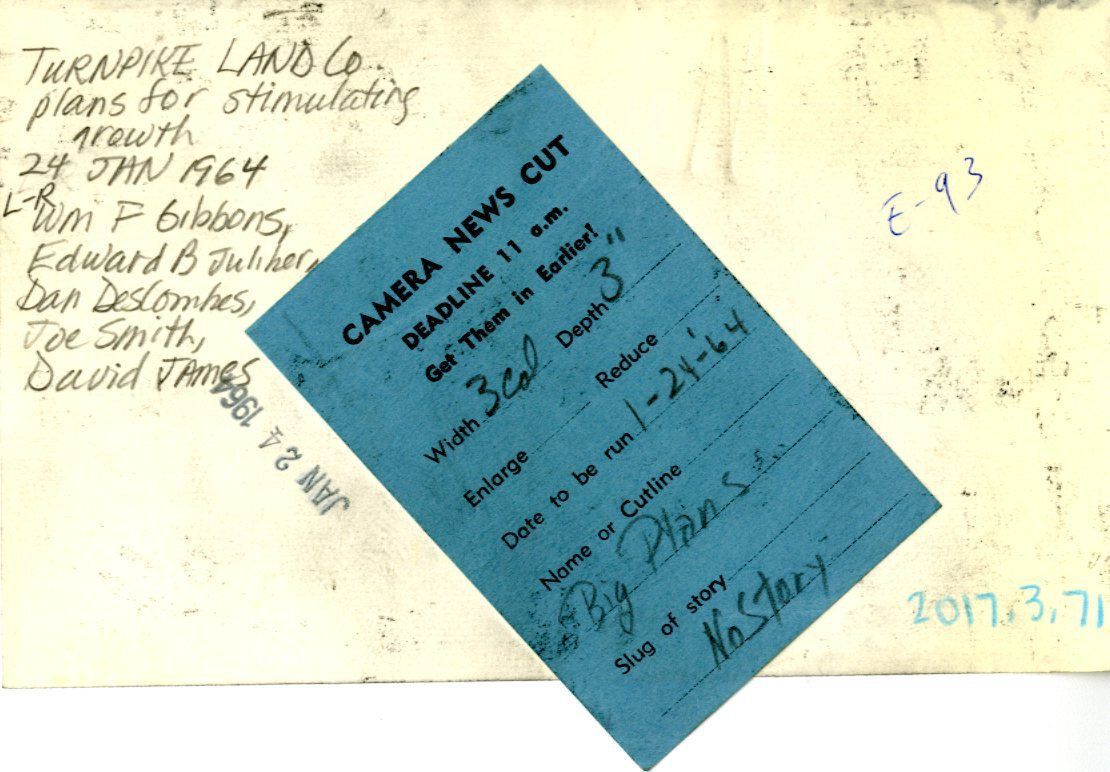 TURNPIKE LAND Co.
plans for stimulating
growth
24 JAN 1964
L-R
Wm F Gibbons,
Edward B Juliher,
Dan DesCombes,
Joe Smith,
David JAMES
JAN 24 1964
CAMERA NEWS CUT
DEADLINE 11 a.m.
Get Them in Earlier!
Width 3 col Depth 3"
Enlarge Reduce
Date to be run 1-24-'64
Name or Cutline
Big Plans...
Slug of story
No Story
E-93
2017.3.71